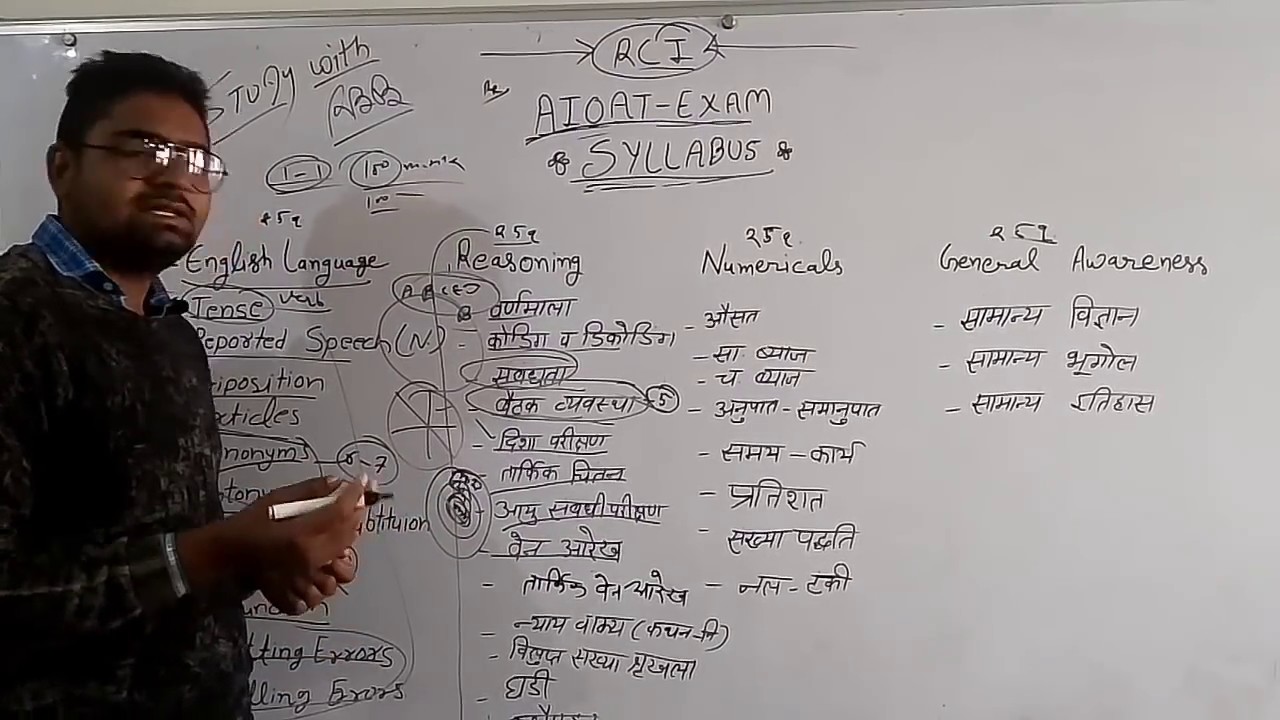 RCI
STUDY with
AIOAT-EXAM
SYLLABUS
1-1 100
100
25q
English Language
Tense Verb
Reported Speech (N)
position
rticles
nonyms 6-7
Errors
Errors
25q
Reasoning
वर्णमाला
- कोडिंग व डिकोडिंग
संवद्यता
- बैठक व्यवस्था 5
- दिशा परीक्षण
- तार्किक चिंतन
- आयु संवधी परीक्षण
- वेन आरेख
- तार्किक वेन आरेख
- न्याय वाक्य
- विलुप्त संख्या शृंखला
- घडी
25q.
Numericals
- औसत
- सा. ब्याज
- च. ब्याज
- अनुपात - समानुपात
- समय - कार्य
- प्रतिशत
- संख्या पद्धति
- नल - टंकी
25q
General Awareness
- सामान्य विज्ञान
- सामान्य भूगोल
- सामान्य इतिहास